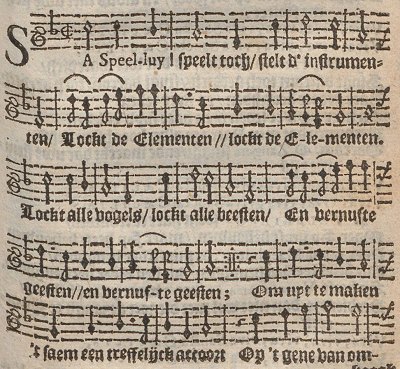 SA Speel-luy! speelt toch/ stelt d' instrumen-
ten/ Lockt de Elementen // lockt de E-le-menten.
Lockt alle vogels/ lockt alle beesten/ En vernufte
geesten// en vernuf-te geesten; Om uyt te maken
't saem een treffelijck accoort Op 't gene van om-